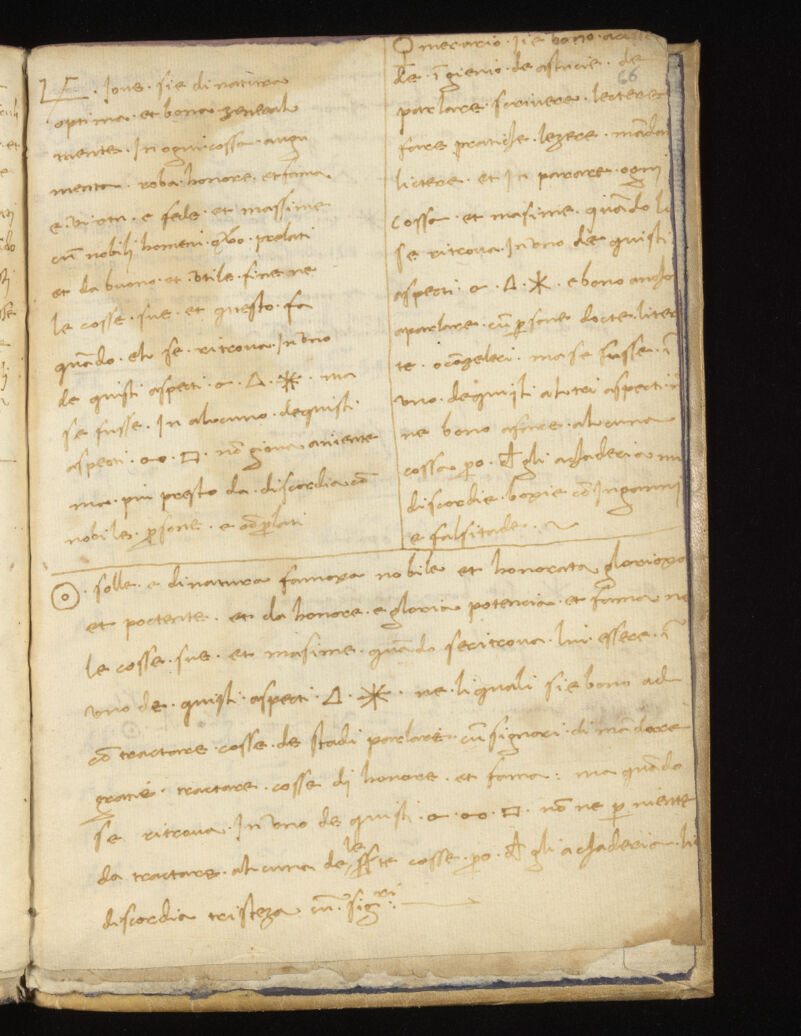 ♃ · Ioue · sie di natura
optima · et bona zeneral
mente · In ogni cossa · augu
menta · roba · honore · et fama
e · uirtu · e fede · et massime
cu᷈ nobili homeni · prelati
et da buono · et · utile · fine ne
le cosse · sue · et questo · fa
qua᷈do · el · se · ritroua · In uno
de quisti aspecti · ☌ · △ · ⚹ · ma
se fusse · In alcuno · dequisti
aspecti · ☍ · □ · no᷈ gioua aniente
ma · piu presto da · discordia co᷈
nobile · p̱sone · e co᷈ p̱lati
mercurio · sie bono
de · i᷈gienio · de astucie · de
66
parlare · scriuere · lectere
fare pratiche · lezere · ma᷈da
lictere · et In parare · ogni
cossa · et masime · qua᷈do lu
se ritroua · In uno de quisti
aspecti · ☌ · △ · ⚹ · e bono ancho
aparlare · cu᷈ p̱sone docte · liter
te · ma se fusse · i᷈
uno · dequisti altri aspecti
ne bono afare · alcuna
cossa p̱o · ch̄ gli achaderia
discordie · boxie co᷈ Inganni
e falsitade ·
☉ · solle · e dinatura famoxa nobile et honorata glorioxo
et poctente · et da honore · e gloria potencia · et fama ne
le cosse · sue · et masime · qua᷈do seritroua · lui essere · i᷈
uno de · quisti · aspecti · △ · ⚹ · ne · liquali sie bono ad
co᷈ tractare cosse · de stadi parlare · cu᷈ signori · di ma᷈dare
gratie · tractare · cosse di honore · et fama : ma qua᷈do
se ritroua · In uno de quisti · ☌ · ☍ · □ · no᷈ ne p̱ niente
da tractare · alcuna de le cosse · p̱o · ch̄ gli achaderia · li
discordia tristeza cu᷈ · sig.ri